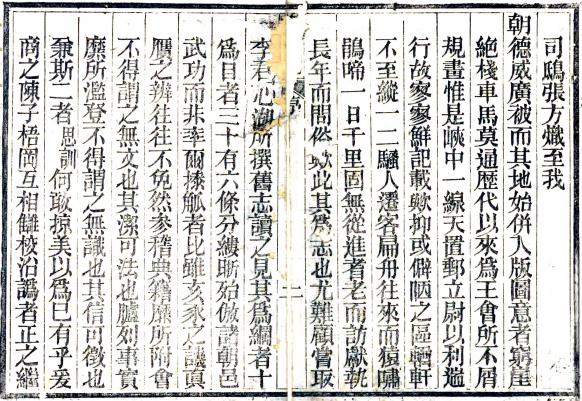 司鴟張方熾至我
朝德威廣被而其地始併入版圖意者窮崖
絕棧車馬莫通歷代以來爲王會所不屑
規畫惟是峽中一線天置郵立尉以利遄
行故寥寥鮮記載歟抑或僻陋之區輶軒
不至縱一二騷人遷客扁舟往來而猿嘯
鵑啼一日千里固無從進者老而訪獻執
長年而問俗歟此其爲志也尤難顧嘗取
二
李君心湖所撰舊志讀之見其爲綱者十
爲日者三十有六條分縷晰殆倣諸朝邑
武功而非率爾操觚者比雖亥豕之譌眞
贋之辨往往不免然參稽典籍靡所附會
不得謂之無文也其潔可法也臚列事實
靡所濫登不得謂之無識也其信可徵也
兼斯二者思訓何敢掠美以爲巳有乎爰
商之陳子梧岡互相讎校沿譌者正之繼